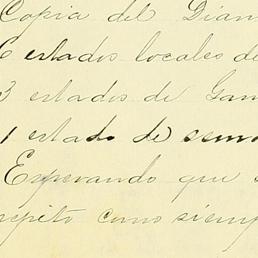 Copia del Dian
6 estados locales de
3 estados de Gan
1 estado de semo
Esperando que s
repito como siemp